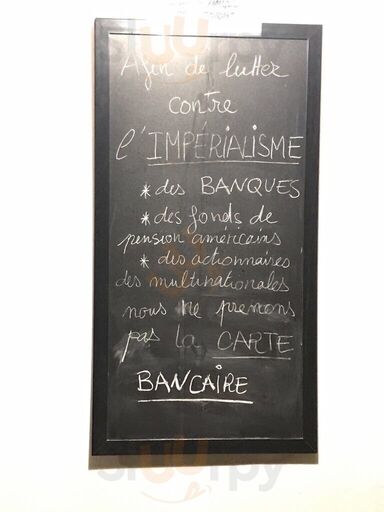 Afin de lutter
contre
l'IMPÉRIALISME
* des BANQUES
* des fonds de
pension américains
* des actionnaires
des multinationales
nous ne prenons
pas la CARTE
BANCAIRE